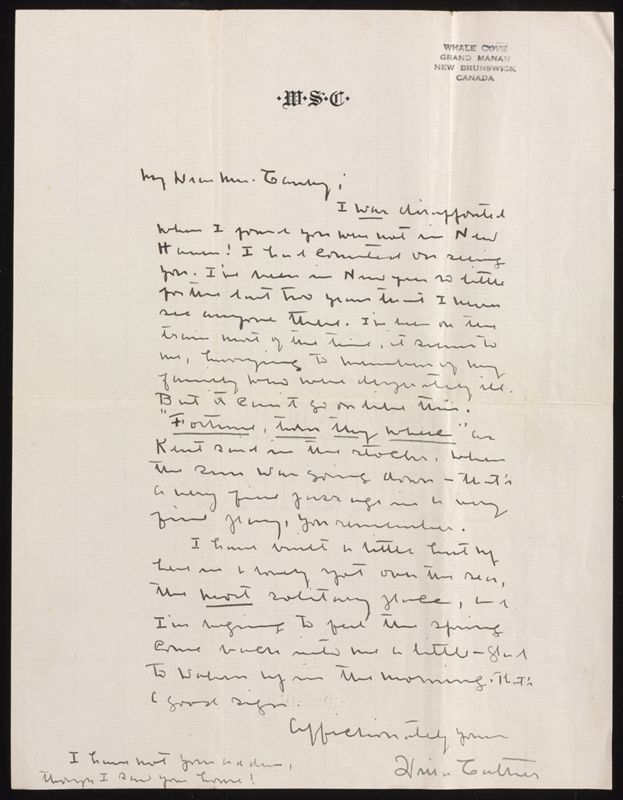 WHALE COVE
GRAND MANAN
NEW BRUNSWICK
CANADA
·W·S·C·
My Dear Mrs. Canby;
I was disappointed
when I found you were not in New
Haven! I had counted on seeing
you. I've been in New York so little
for the last two years that I never
see anyone there. I've been on the
train most of the time, it seems to
me, hurrying to members of my
family who were desperately ill.
But it can't go on like this.
"Fortune, turn thy wheel" as
Kent said in the stocks, when
the sun was going down - that's
a very fine passage in a very
fine play, you remember.
I have built a little hut up
here in a lonely spot over the sea,
the most solitary place, and
I'm beginning to feel the spring
come back into me a little - glad
to waken up in the morning. That's
a good sign.
Affectionately yours
Willa Cather
I have not your address,
though I saw your home!